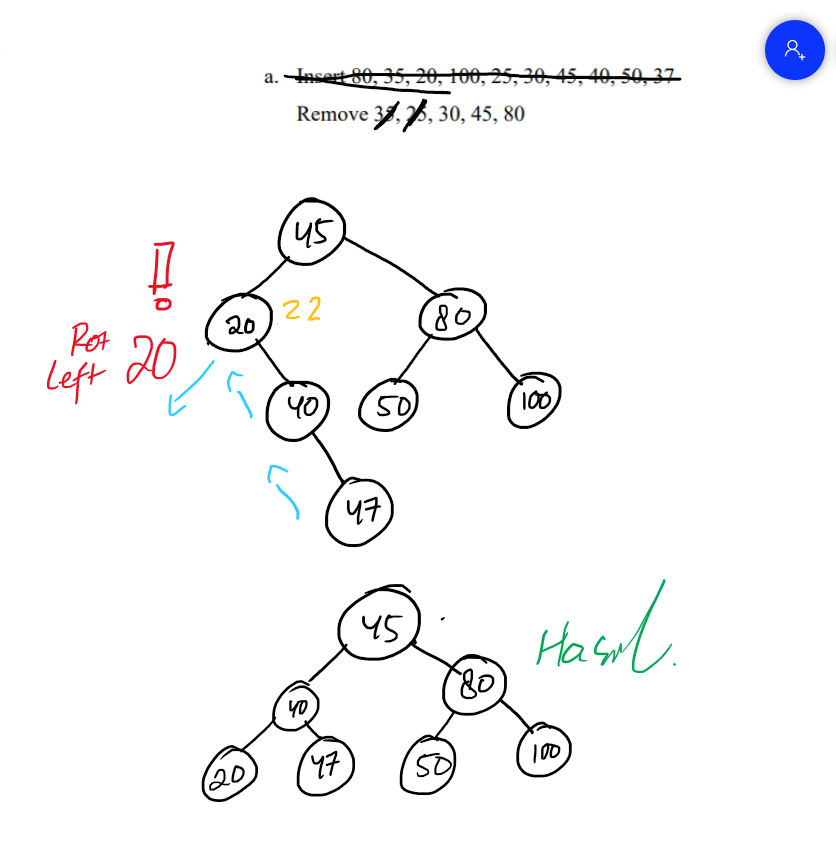 a. Insert 80, 35, 20, 100, 25, 30, 45, 40, 50, 37
Remove 35, 25, 30, 45, 80
45
!!
20 22
80
Rot
Left 20
40
50
100
47
45
Hasil.
80
40
20
47
50
100